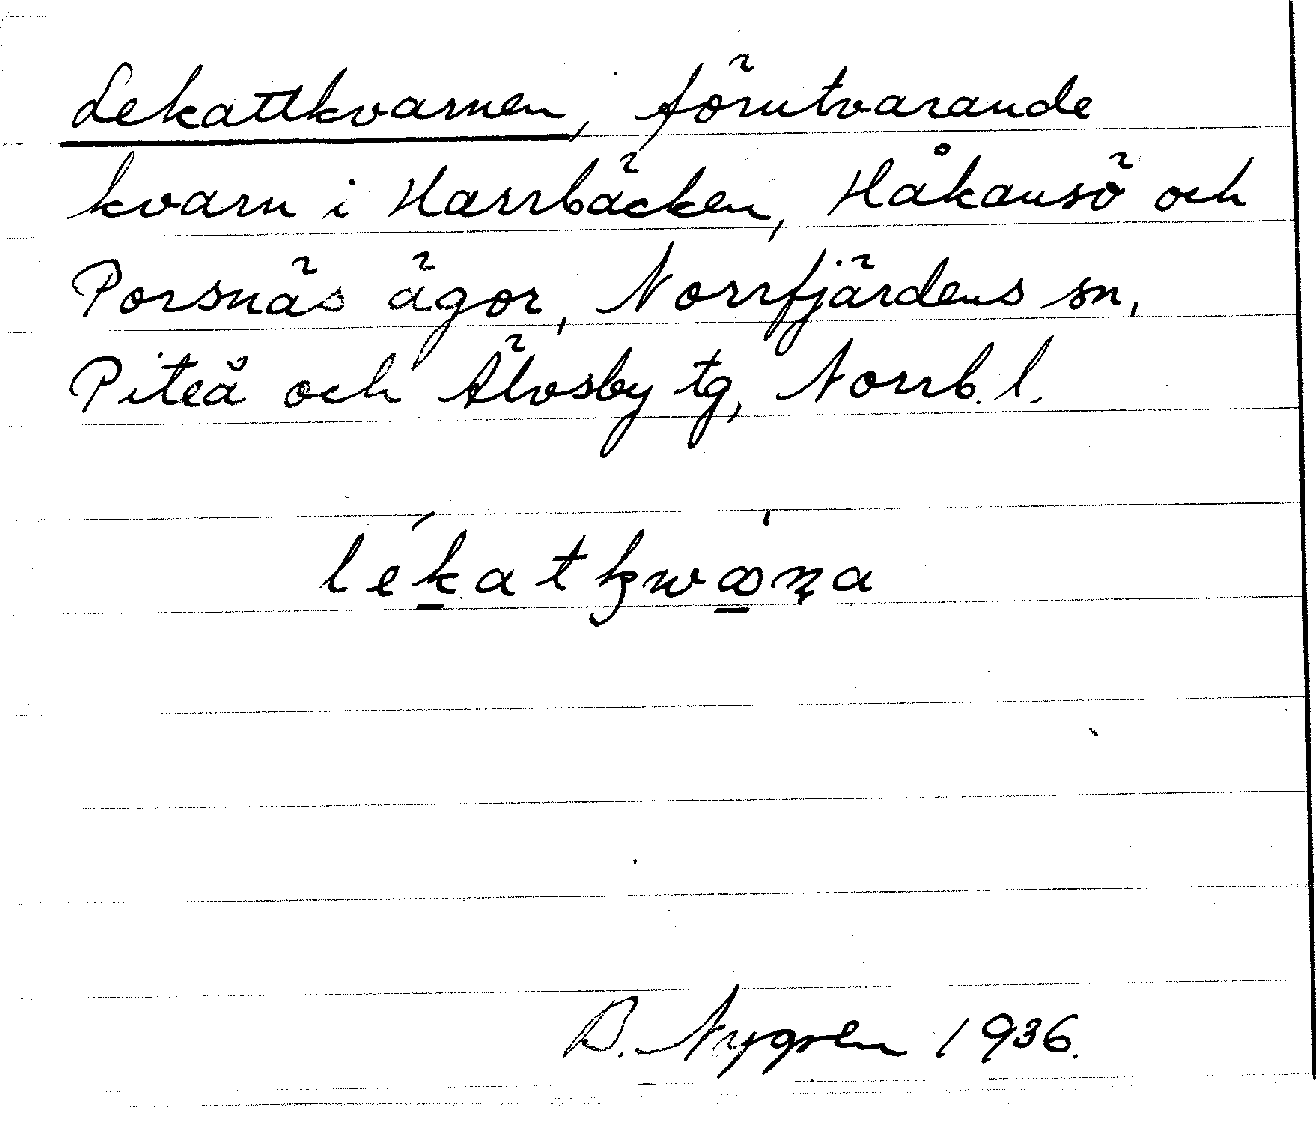 Lekattkvarnen, förutvarande
kvarn i Harrbäcken, Håkansö och
Porsnäs ägor, Norrfjärdens sn,
Piteå och Älvsby tg, Norrb. l.
lékatkwa̲ṇa
B. Nygren 1936.